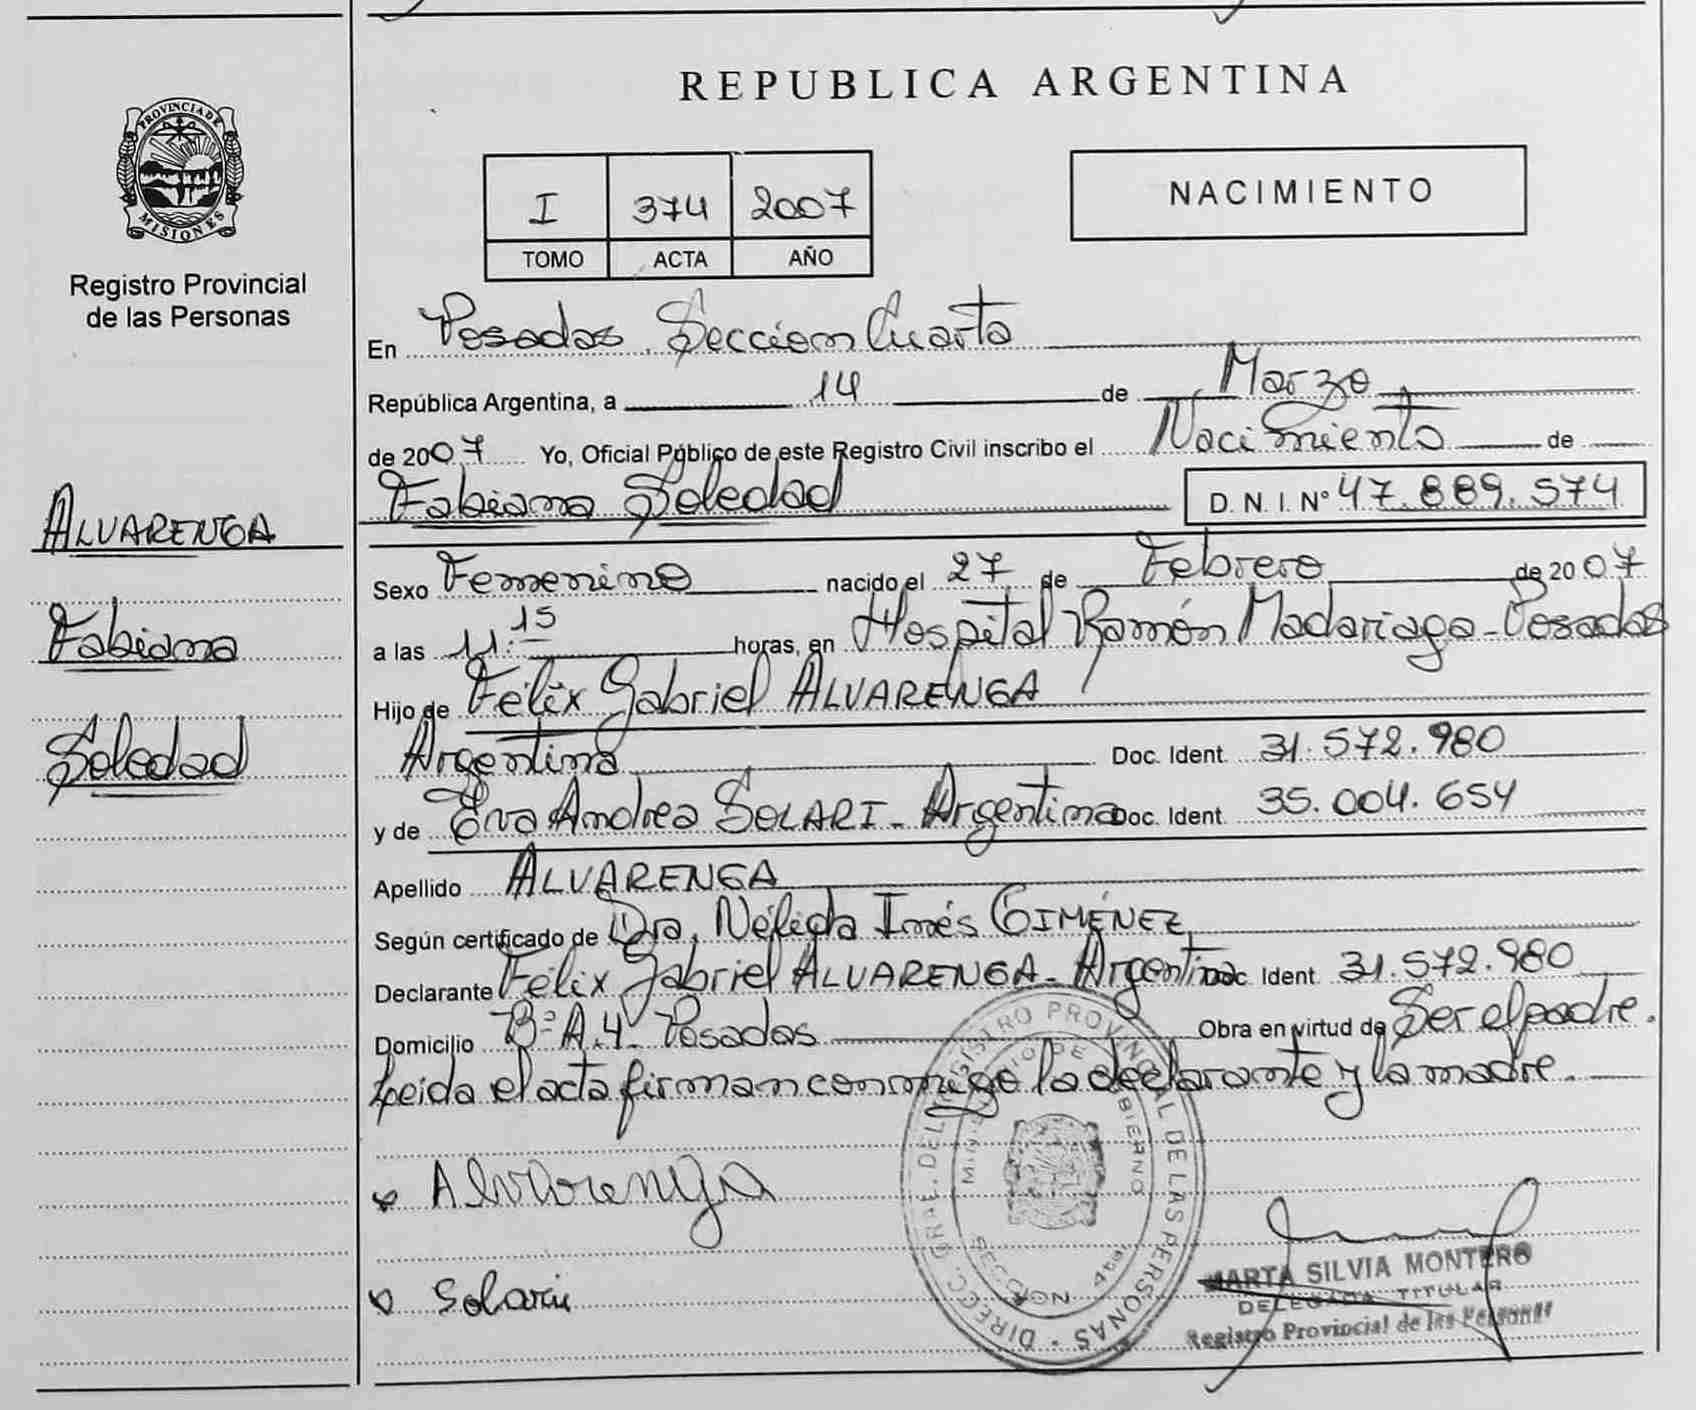 REPUBLICA ARGENTINA
PROVINCIA DE
MISIONES
Registro Provincial
de las Personas
I 374 2007
TOMO ACTA AÑO
NACIMIENTO
En Posadas Sección Cuarta
República Argentina, a 14 de Marzo
de 2007 Yo, Oficial Público de este Registro Civil inscribo el Nacimiento de
Fabiana Soledad D. N. I. Nº 47.889.574
ALVARENGA
Fabiana
Soledad
Sexo Femenino nacido el 27 de Febrero de 2007
a las 11:15 horas, en Hospital Ramón Madariaga - Posadas
Hijo de Félix Gabriel ALVARENGA
Argentina Doc. Ident. 31.572.980
y de Eva Andrea SOLARI - Argentina Doc. Ident. 35.004.654
Apellido ALVARENGA
Según certificado de Dra. Nélida Inés GIMÉNEZ
Declarante Félix Gabriel ALVARENGA - Argentina Doc. Ident. 31.572.980
Domicilio Bº A.4 - Posadas Obra en virtud de Ser el padre.
Leida el acta firman conmigo la declarante y la madre.
Alvarenga
Solari
DIRECC. GRAL. DEL REGISTRO PROVINCIAL DE LAS PERSONAS
MINISTERIO DE GOBIERNO
MARTA SILVIA MONTERO
DELEGADA TITULAR
Registro Provincial de las Personas